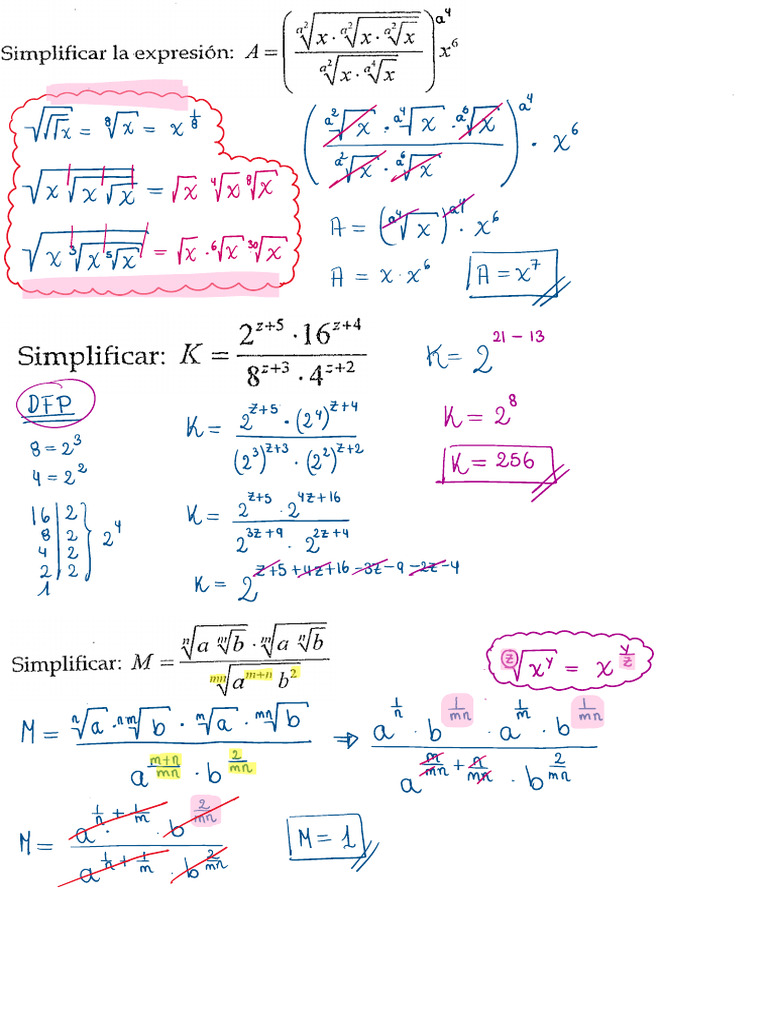 Simplificar la expresión: A = \left( \frac{\sqrt[a^2]{x \cdot \sqrt[a^2]{x \cdot \sqrt[a^2]{x}}}}{\sqrt[a^2]{x \cdot \sqrt[a^4]{x}}} \right)^{a^4} x^6
\sqrt{\sqrt{\sqrt{x}}} = \sqrt[8]{x} = x^{\frac{1}{8}}
\sqrt{x \sqrt{x \sqrt{x}}} = \sqrt{x} \sqrt[4]{x} \sqrt[8]{x}
\sqrt{x \sqrt[3]{x \sqrt[5]{x}}} = \sqrt{x} \cdot \sqrt[6]{x} \cdot \sqrt[30]{x}
\left( \frac{\sqrt[a^2]{x} \cdot \sqrt[a^4]{x} \cdot \sqrt[a^6]{x}}{\sqrt[a^2]{x} \cdot \sqrt[a^6]{x}} \right)^{a^4} \cdot x^6
A = \left( \sqrt[a^4]{x} \right)^{a^4} \cdot x^6
A = x \cdot x^6
A = x^7
Simplificar: K = \frac{2^{z+5} \cdot 16^{z+4}}{8^{z+3} \cdot 4^{z+2}}
DFP
8 = 2^3
4 = 2^2
16 | 2
8 | 2
4 | 2
2 | 2
1
} 2^4
K = \frac{2^{z+5} \cdot (2^4)^{z+4}}{(2^3)^{z+3} \cdot (2^2)^{z+2}}
K = \frac{2^{z+5} \cdot 2^{4z+16}}{2^{3z+9} \cdot 2^{2z+4}}
K = 2^{z+5+4z+16-3z-9-2z-4}
K = 2^{21-13}
K = 2^8
K = 256
Simplificar: M = \frac{\sqrt[n]{a \sqrt[m]{b}} \cdot \sqrt[m]{a \sqrt[n]{b}}}{\sqrt[mn]{a^{m+n} b^2}}
\sqrt[z]{x^y} = x^{\frac{y}{z}}
M = \frac{\sqrt[n]{a} \cdot \sqrt[nm]{b} \cdot \sqrt[m]{a} \cdot \sqrt[mn]{b}}{a^{\frac{m+n}{mn}} \cdot b^{\frac{2}{mn}}} ⇒ \frac{a^{\frac{1}{n}} \cdot b^{\frac{1}{mn}} \cdot a^{\frac{1}{m}} \cdot b^{\frac{1}{mn}}}{a^{\frac{m}{mn} + \frac{n}{mn}} \cdot b^{\frac{2}{mn}}}
M = \frac{a^{\frac{1}{n} + \frac{1}{m}} \cdot b^{\frac{2}{mn}}}{a^{\frac{1}{n} + \frac{1}{m}} \cdot b^{\frac{2}{mn}}}
M = 1